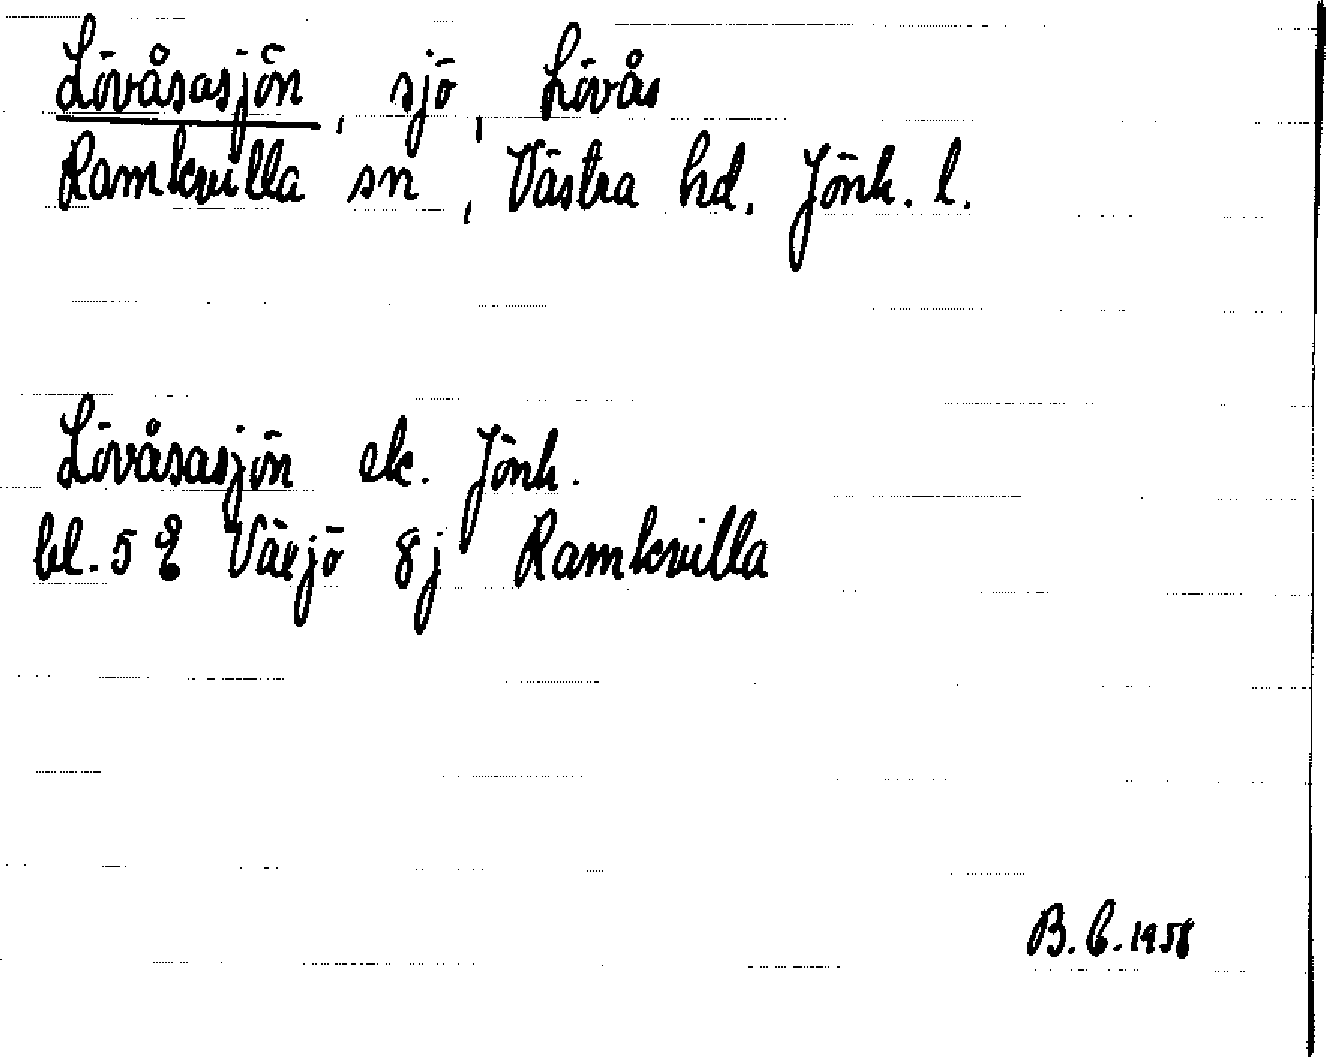 Lövåsasjön, sjö, Lövås
Ramkvilla sn, Västra hd. Jönk. l.
Lövåsasjön ek. Jönk.
bl. 5 E Växjö 8j Ramkvilla
B. C. 1958